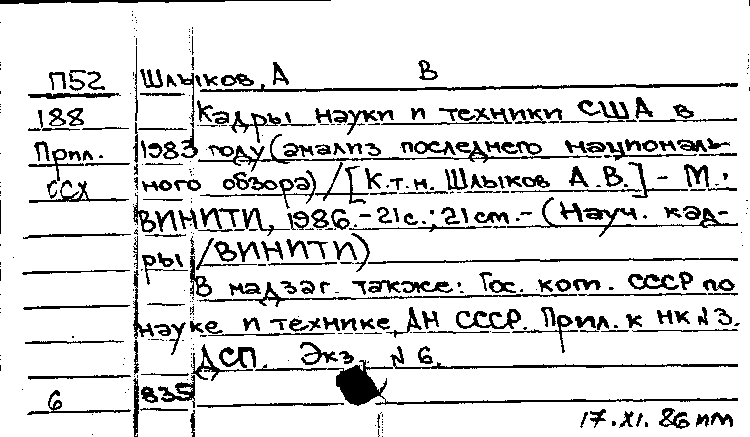 П52 Шлыков, А В
188 Кадры науки и техники США в
Прил. 1983 году (анализ последнего националь-
ССХ ного обзора) / [К.т.н. Шлыков А.В.] - М.:
ВИНИТИ, 1986. - 21с.; 21см. - (Науч. кад-
ры / ВИНИТИ)
В надзаг. также: Гос. ком. СССР по
науке и технике, АН СССР. Прил. к НК №3.
ДСП. Экз. №6.
6 835
17.XI.86